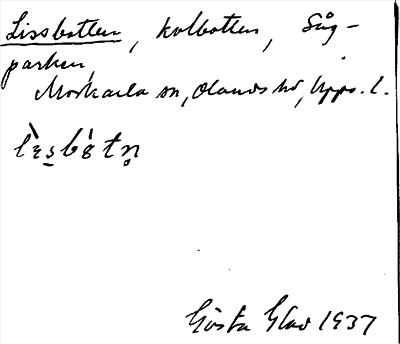 Lissbotten, kolbotten, Såg-
parken,
Morkarla sn, Olands hd, Upps. l.
Gösta Glad 1937